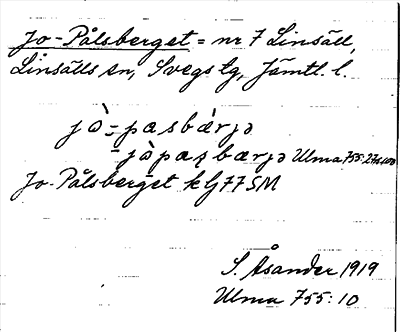 Jo-Pålsberget = nr 7 Linsäll,
Linsälls sn, Svegs tg, Jämtl. l.
jò-pæsbærjə
-jòpæʂbærjə Ulma 755:27
Jo-Pålsberget klj77SM
S. Åsander 1919
Ulma 755:10